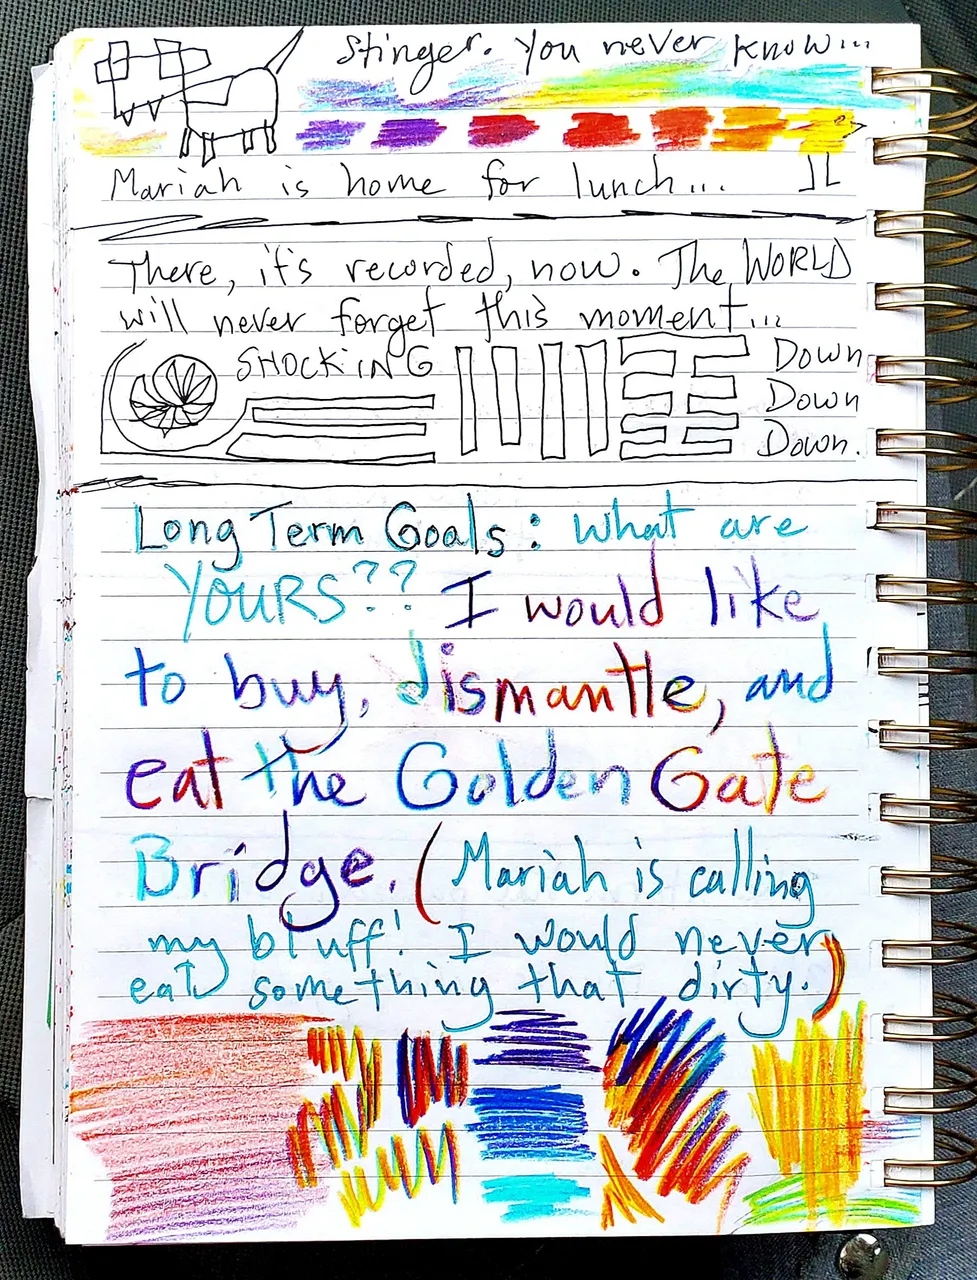 Stinger. You never know...
Mariah is home for lunch...
There, it's recorded, now. The WORLD
will never forget this moment...
SHOCKING
Down
Down
Down.
Long Term Goals: What are
YOURS?? I would like
to buy, dismantle, and
eat the Golden Gate
Bridge. (Mariah is calling
my bluff! I would never
eat something that dirty.)